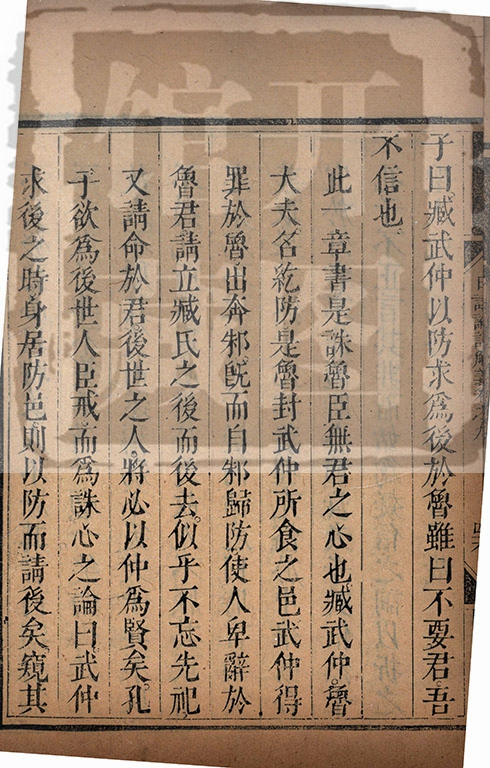 子曰臧武仲以防求爲後於魯雖曰不要君吾
不信也
此一章書是誅魯臣無君之心也臧武仲魯
大夫名紇防是魯封武仲所食之邑武仲得
罪於魯出奔邾旣而自邾歸防使人卑辭於
魯君請立臧氏之後而後去似乎不忘先祀
又請命於君後世之人將必以仲爲賢矣孔
子欲爲後世人臣戒而爲誅心之論曰武仲
求後之時身居防邑則以防而請後矣窺其